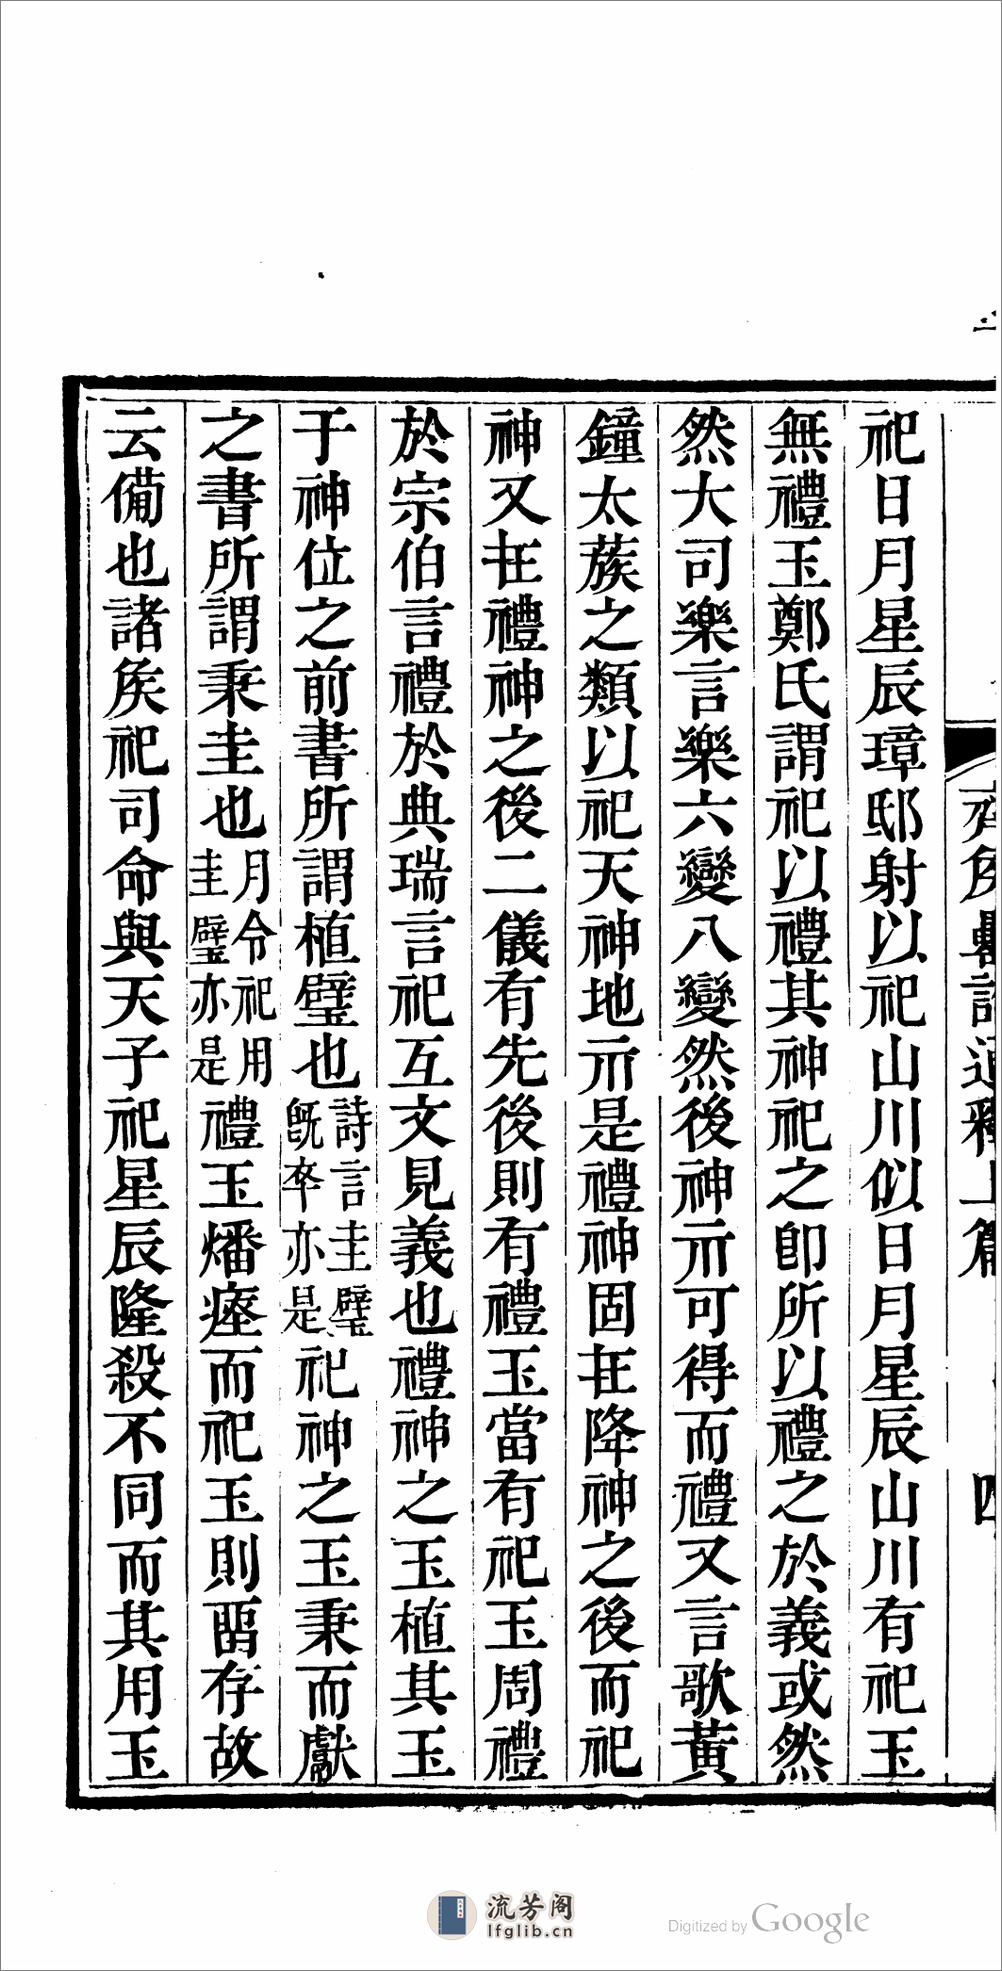 祀日月星辰璋邸射以祀山川似日月星辰山川有祀玉
無禮玉鄭氏謂祀以禮其神祀之卽所以禮之於義或然
然大司樂言樂六變八變然後神示可得而禮又言歌黃
鐘太蔟之類以祀天神地示是禮神固在降神之後而祀
神又在禮神之後二儀有先後則有禮玉當有祀玉周禮
於宗伯言禮於典瑞言祀互文見義也禮神之玉植其玉
于神位之前書所謂植璧也詩言圭璧旣卒亦是祀神之玉秉而獻
之書所謂秉圭也月令祀用圭璧亦是禮玉燔瘞而祀玉則畱存故
云備也諸矦祀司命與天子祀星辰隆殺不同而其用玉
上篇
四
流芳阁
lfglib.cn
Digitized by Google